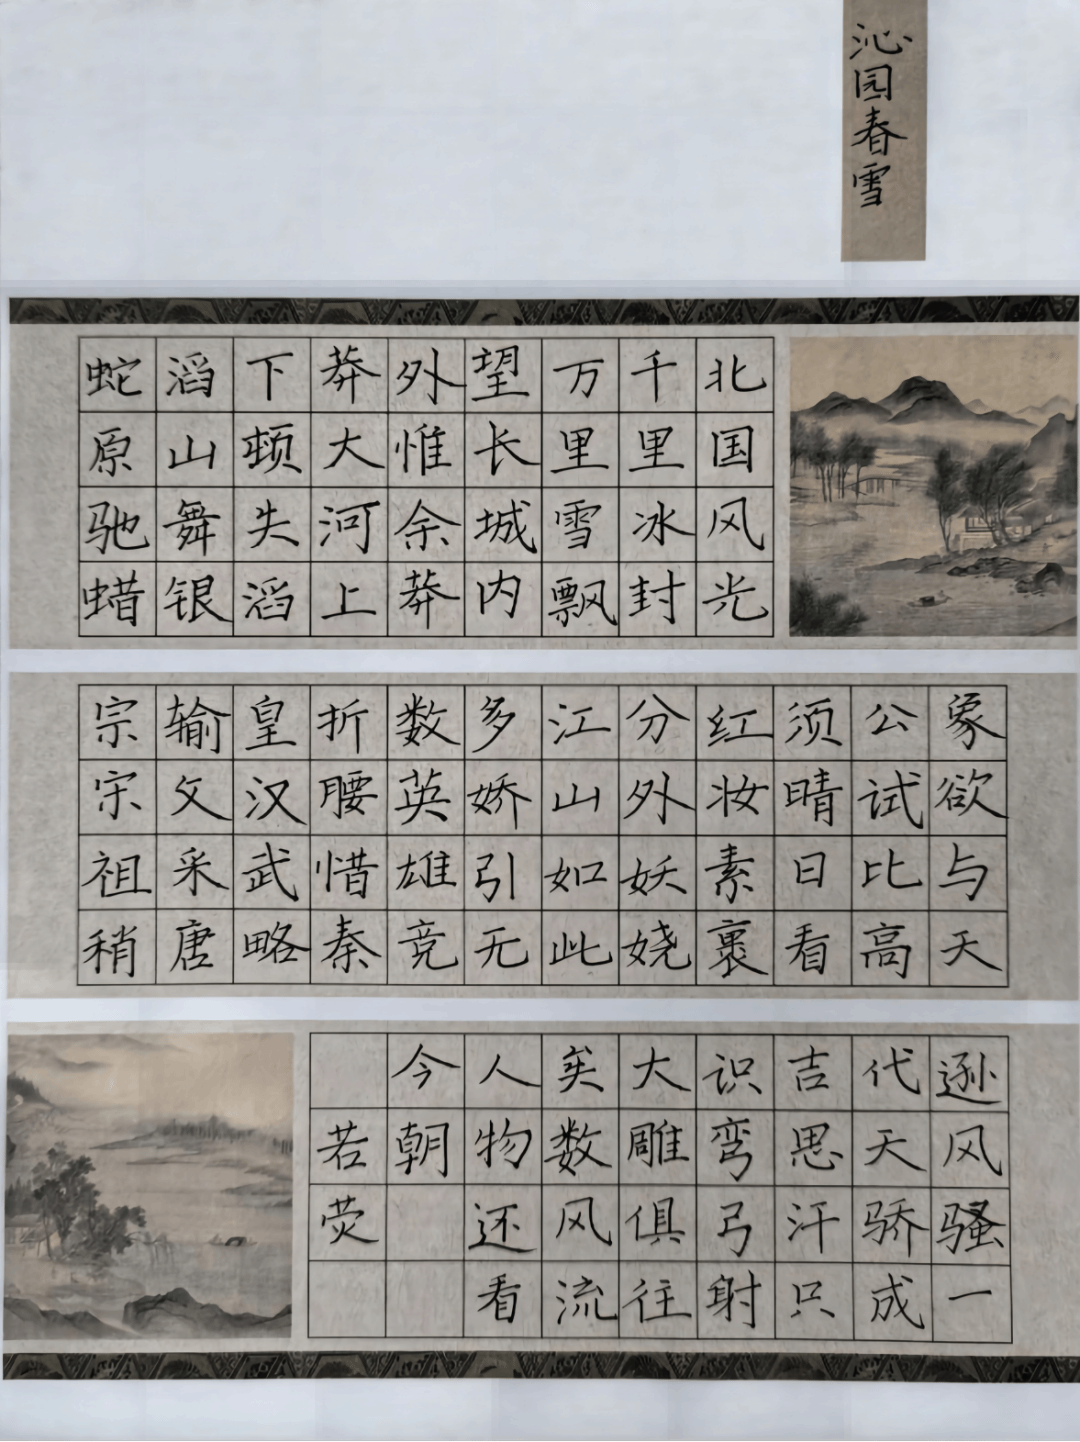 沁园春雪
北国风光
千里冰封
万里雪飘
望长城内
外惟余莽
莽大河上
下顿失滔
滔山舞银
蛇原驰蜡
象欲与天
公试比高
须晴日看
红妆素裹
分外妖娆
江山如此
多娇引无
数英雄竞
折腰惜秦
皇汉武略
输文采唐
宗宋祖稍
逊风骚一
代天骄成
吉思汗只
识弯弓射
大雕俱往
矣数风流
人物还看
今朝
若荧